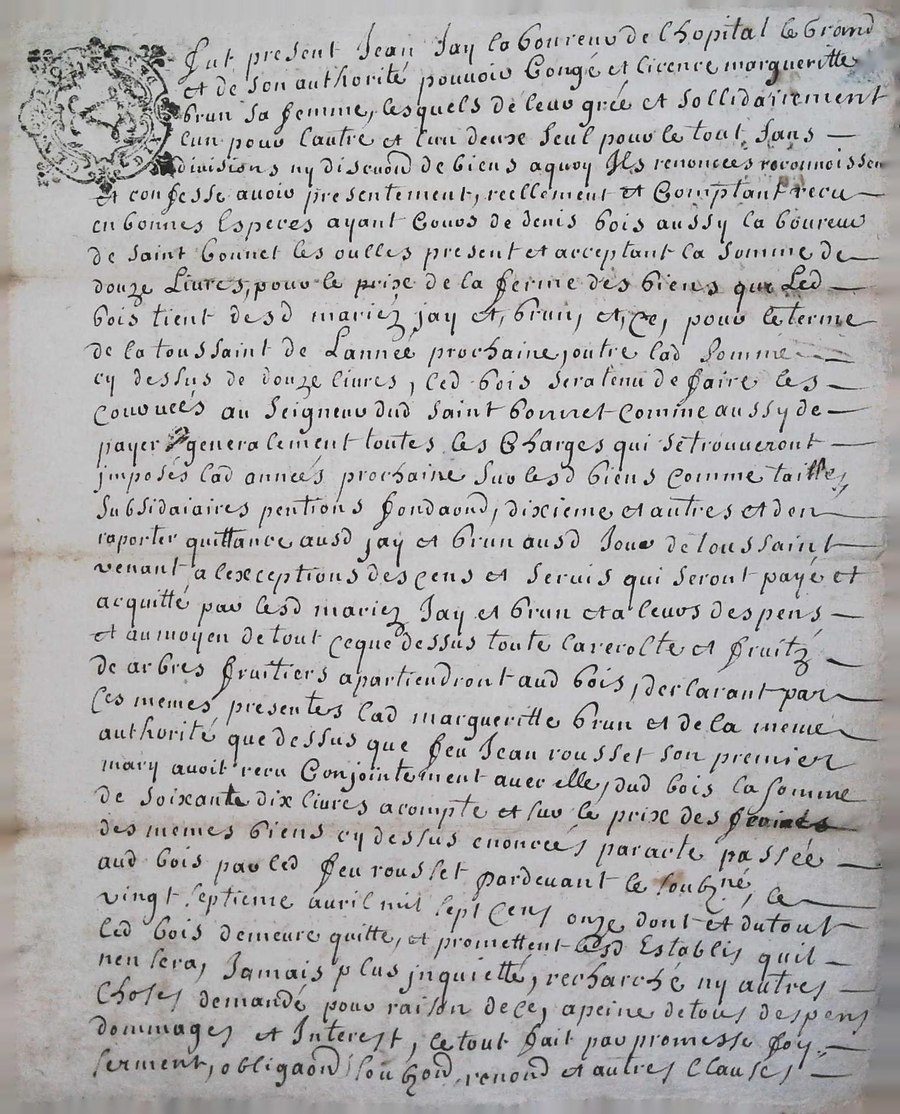 fut present Jean Jay laboureur de lhopital le Grand
et de son authorité pouvoir Congé et licence margueritte
brun sa femme, lesquels de leur grée et sollidairement
lun pour lautre et lun deux seul pour le tout sans
divisions ny discuond de biens aquoy Ils renoncees reconnoissen
et confesse avoir presentement, reellement et Comptant recu
en bonnes Especes ayant Cours de denis bois aussy laboureur
de saint bonnet les oulles present et acceptant la somme de
douze Livres, pour le prix de la ferme des biens que Led
bois tient desd mariez jay et, brun, et, ce, pour le terme
de la toussaint de Lannée prochaine, outre lad somme
cy dessus de douze livres, led bois sera tenu de faire les
couruées au seigneur dud saint bonnet comme aussy de
payer generalement toutes les Charges qui se trouveront
imposés lad années prochaine sur lesd biens comme tailles,
subsidaiaires pentions fondaond, dixieme et autres et den
raporter quittance ausd jay et brun ausd Jour de toussaint
venant a lexceptions des cens et servis qui seront payé et
acquitté par lesd mariez Jay et brun et a leurs despens
et au moyen de tout ceque dessus toute la recolte et fruitz
de arbres fruitiers apartiendront aud bois, declarant par
Ces memes presentes lad margueritte brun et de la meme
authorité que dessus que feu Jean rousset son premier
mary avoit recu Conjointement avec elle, dud bois la somme
de soixante dix livres acompte et sur le prix des fermes
des memes biens cy dessus enoncées par acte passée
aud bois par led feu rousset pardevant le soubzné, le
vingt septieme avril mil sept cens onze dont et du tout
led bois demeure quitte, et promettent lesd Establis quil
nen sera, Jamais plus jnquietté, recharché ny autres
Choses demandé pour raison de ce, a peine de tous despens
dommages et Interest, le tout fait par promesse foy
serment, obligaond soubzond renond et autres Clauses